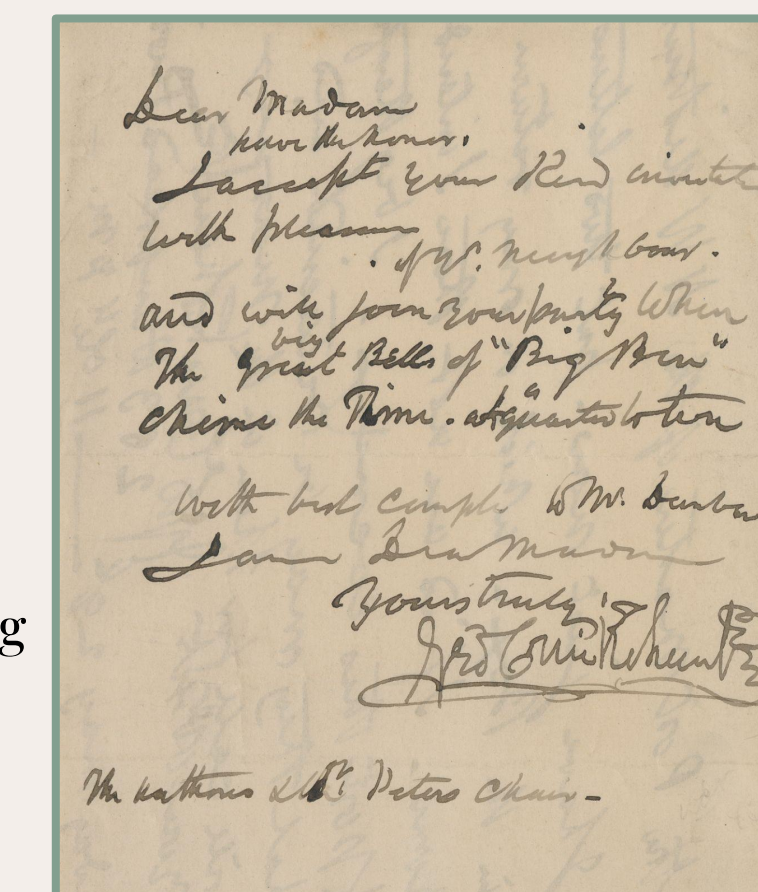 Dear Madam
have the honor.
I accept your Kind
with pleasure
of yr. neighbour.
and will join your party When
big
The great Bells of "Big Ben"
chime the Time. at a quarter to ten
with best compls to Mr.
I am Dear Madam
Yours truly
Geo
The Peters Chair -
g